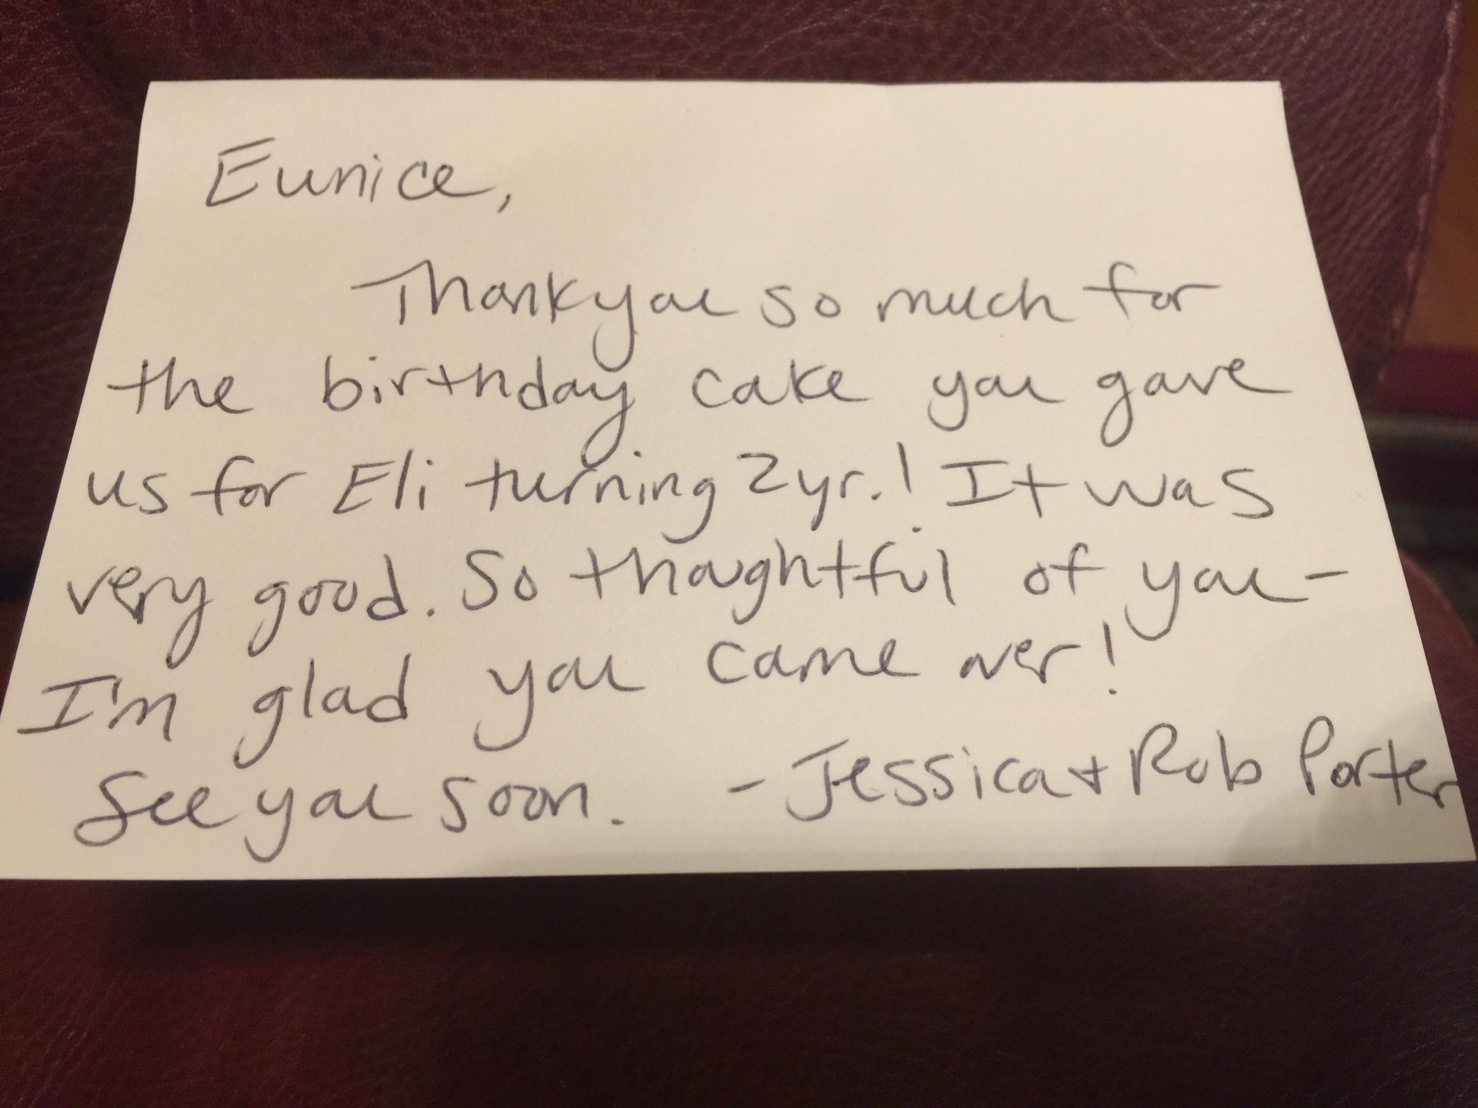 Eunice,
Thank you so much for
the birthday cake you gave
us for Eli turning 2yr.! It was
very good. So thoughtful of you-
I'm glad you came over!
See you soon. - Jessica + Rob Porter